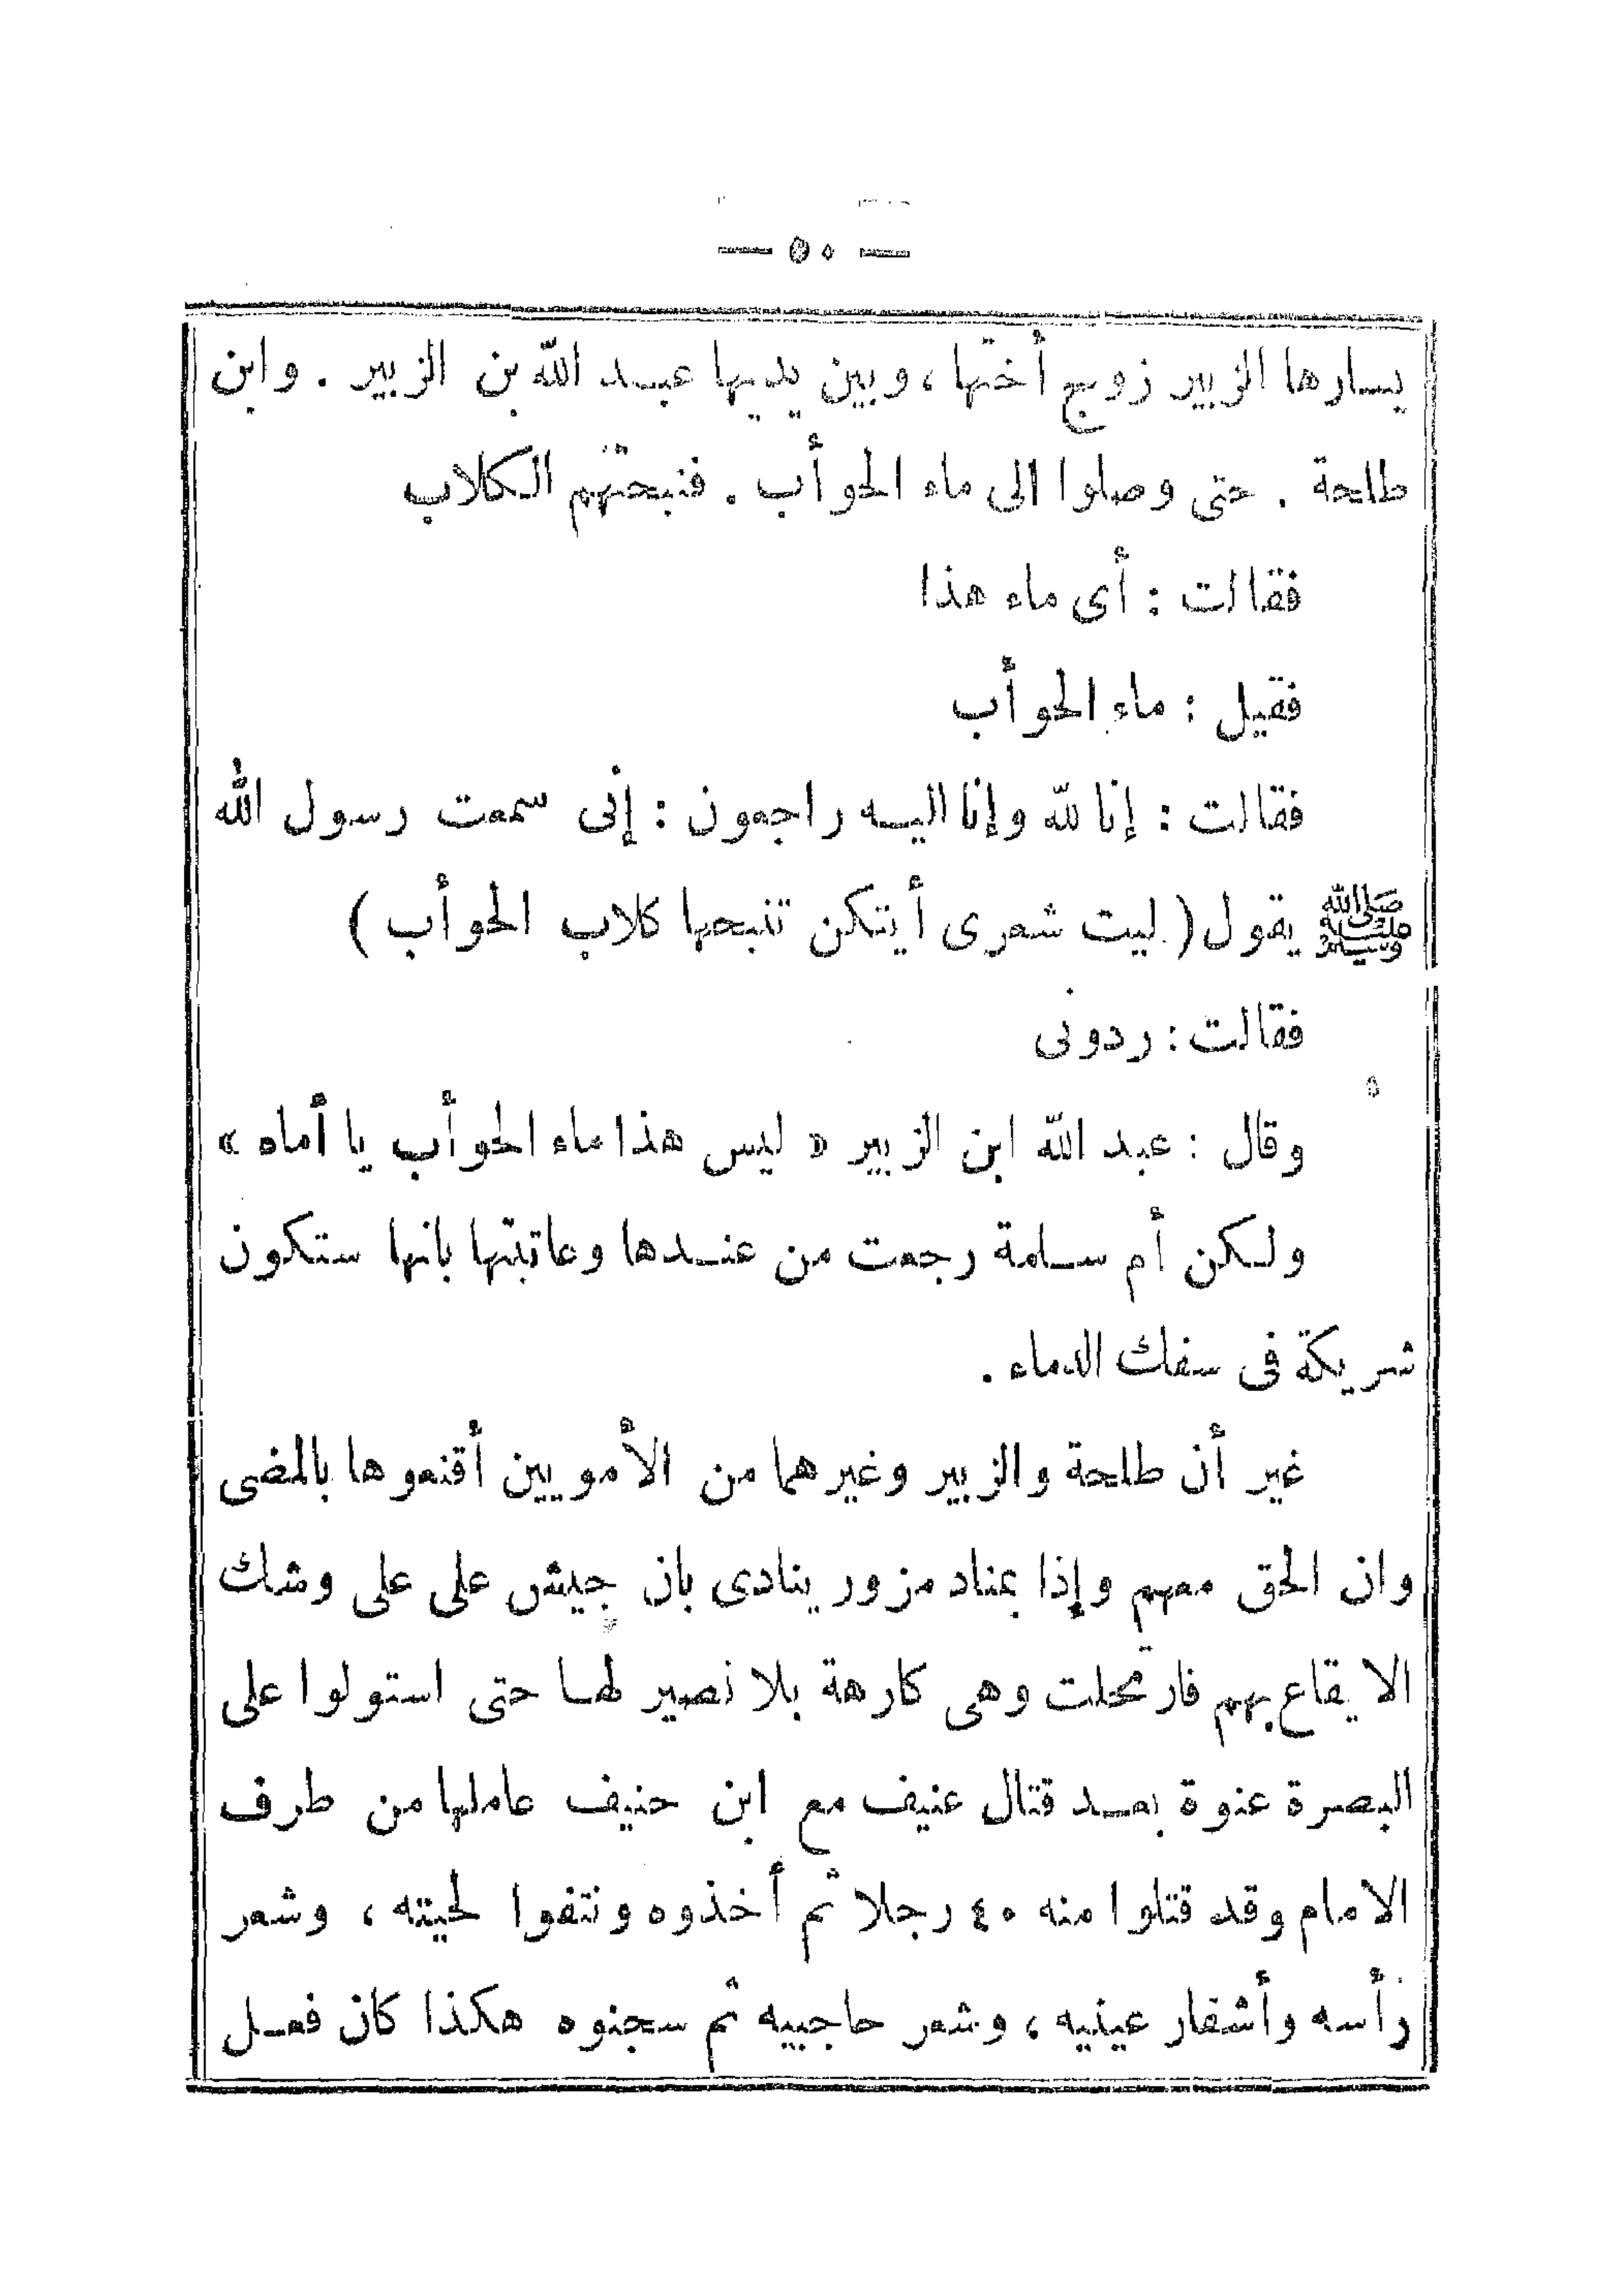 — ٥٠ —
يسارها الزبير زوج أختها ، وبين يديها عبد الله بن الزبير . وابن
طلحة . حتى وصلوا الى ماء الحوأب . فنبحتهم الكلاب
فقالت : أى ماء هذا
فقيل : ماء الحوأب
فقالت : إنا لله وإنا اليه راجعون : إنى سمعت رسول الله
ﷺ يقول ( ليت شعرى أيتكن تنبحها كلاب الحوأب )
فقالت : ردونى
وقال : عبد الله ابن الزبير « ليس هذا ماء الحوأب يا أماه »
ولكن أم سلمة رجعت من عندها وعاتبتها بانها ستكون
شريكة فى سفك الدماء .
غير أن طلحة والزبير وغيرهما من الأمويين أقنعوها بالمضى
وان الحق معهم وإذا بمناد مزور ينادى بان جيش على على وشك
الايقاع بهم فارتحلت وهى كارهة بلا نصير لها حتى استولوا على
البصرة عنوة بعد قتال عنيف مع ابن حنيف عاملها من طرف
الامام وقد قتلوا منه ٤٠ رجلا ثم أخذوه ونتفوا لحيته ، وشعر
رأسه وأشفار عينيه ، وشعر حاجبيه ثم سجنوه هكذا كان فعل